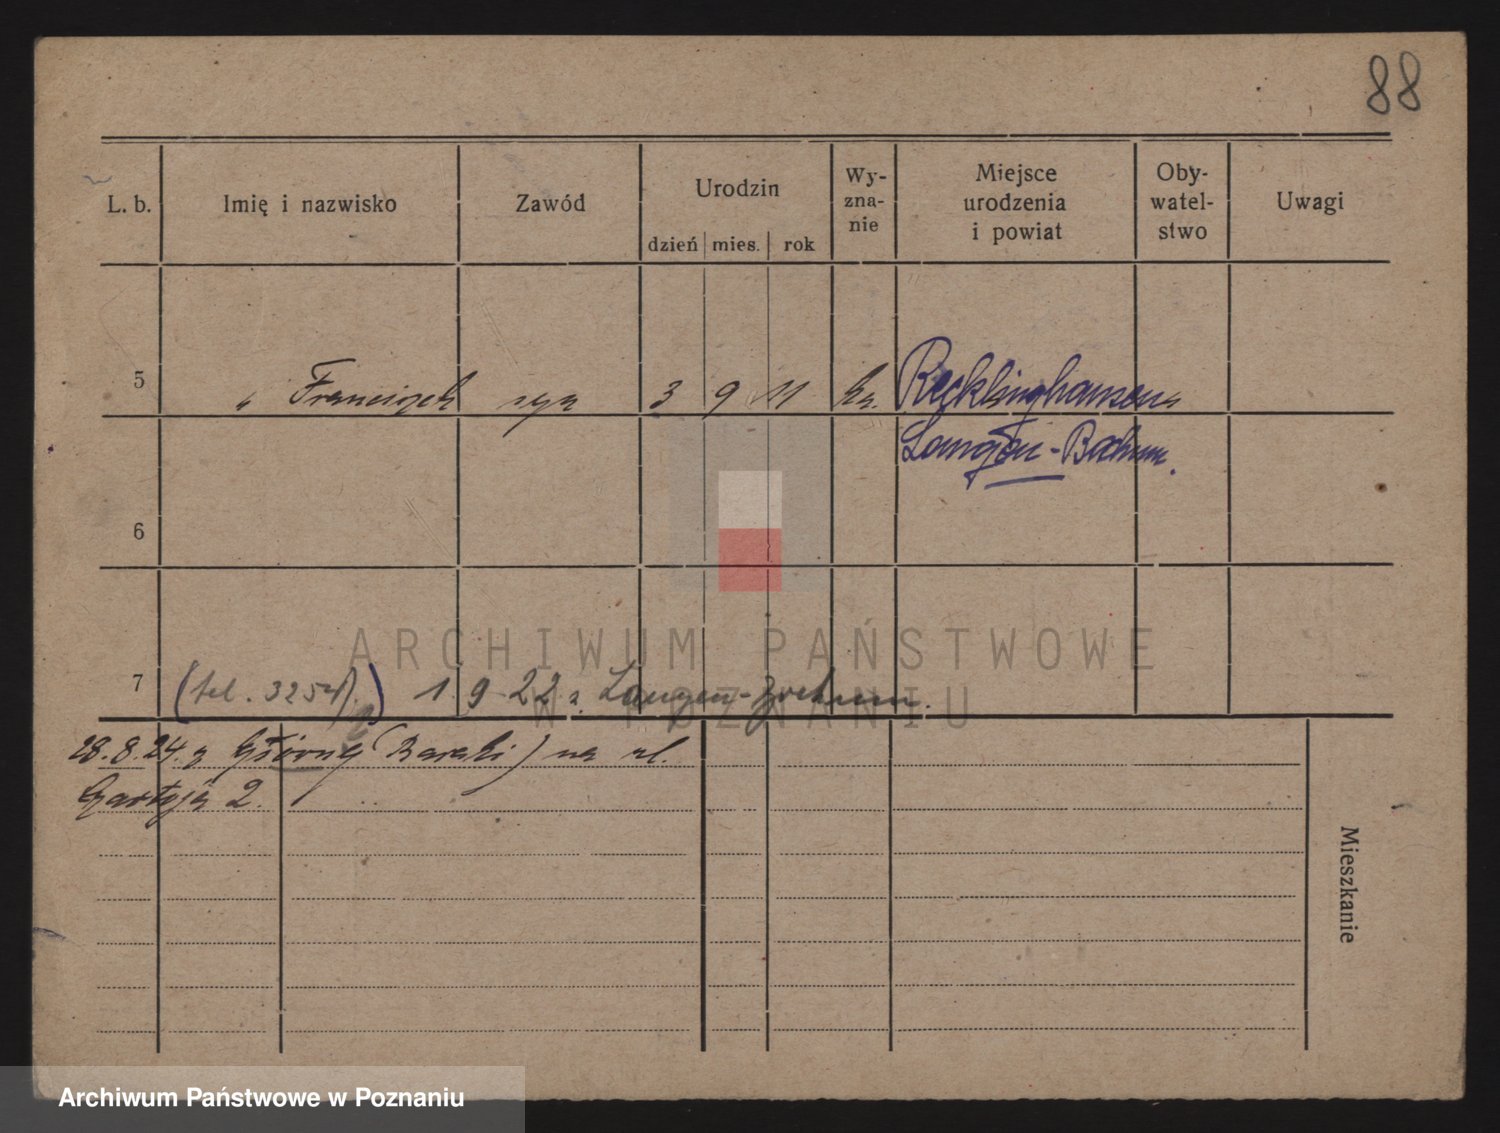 88
L. b. Imię i nazwisko Zawód Urodzin Wy-zna-nie Miejsce urodzenia i powiat Oby-watel-stwo Uwagi
dzień mies. rok
5 „ Franciszek syn 3 9 11 ka. Recklinghausen
Langen-Bochum.
6
ARCHIWUM PAŃSTWOWE
7 (tel. 3254/) 1.9.22 z Langen-Bochum.
W POZNANIU
28.8.24. z Główny (Baraki) na ul.
2.
Mieszkanie
Archiwum Państwowe w Poznaniu